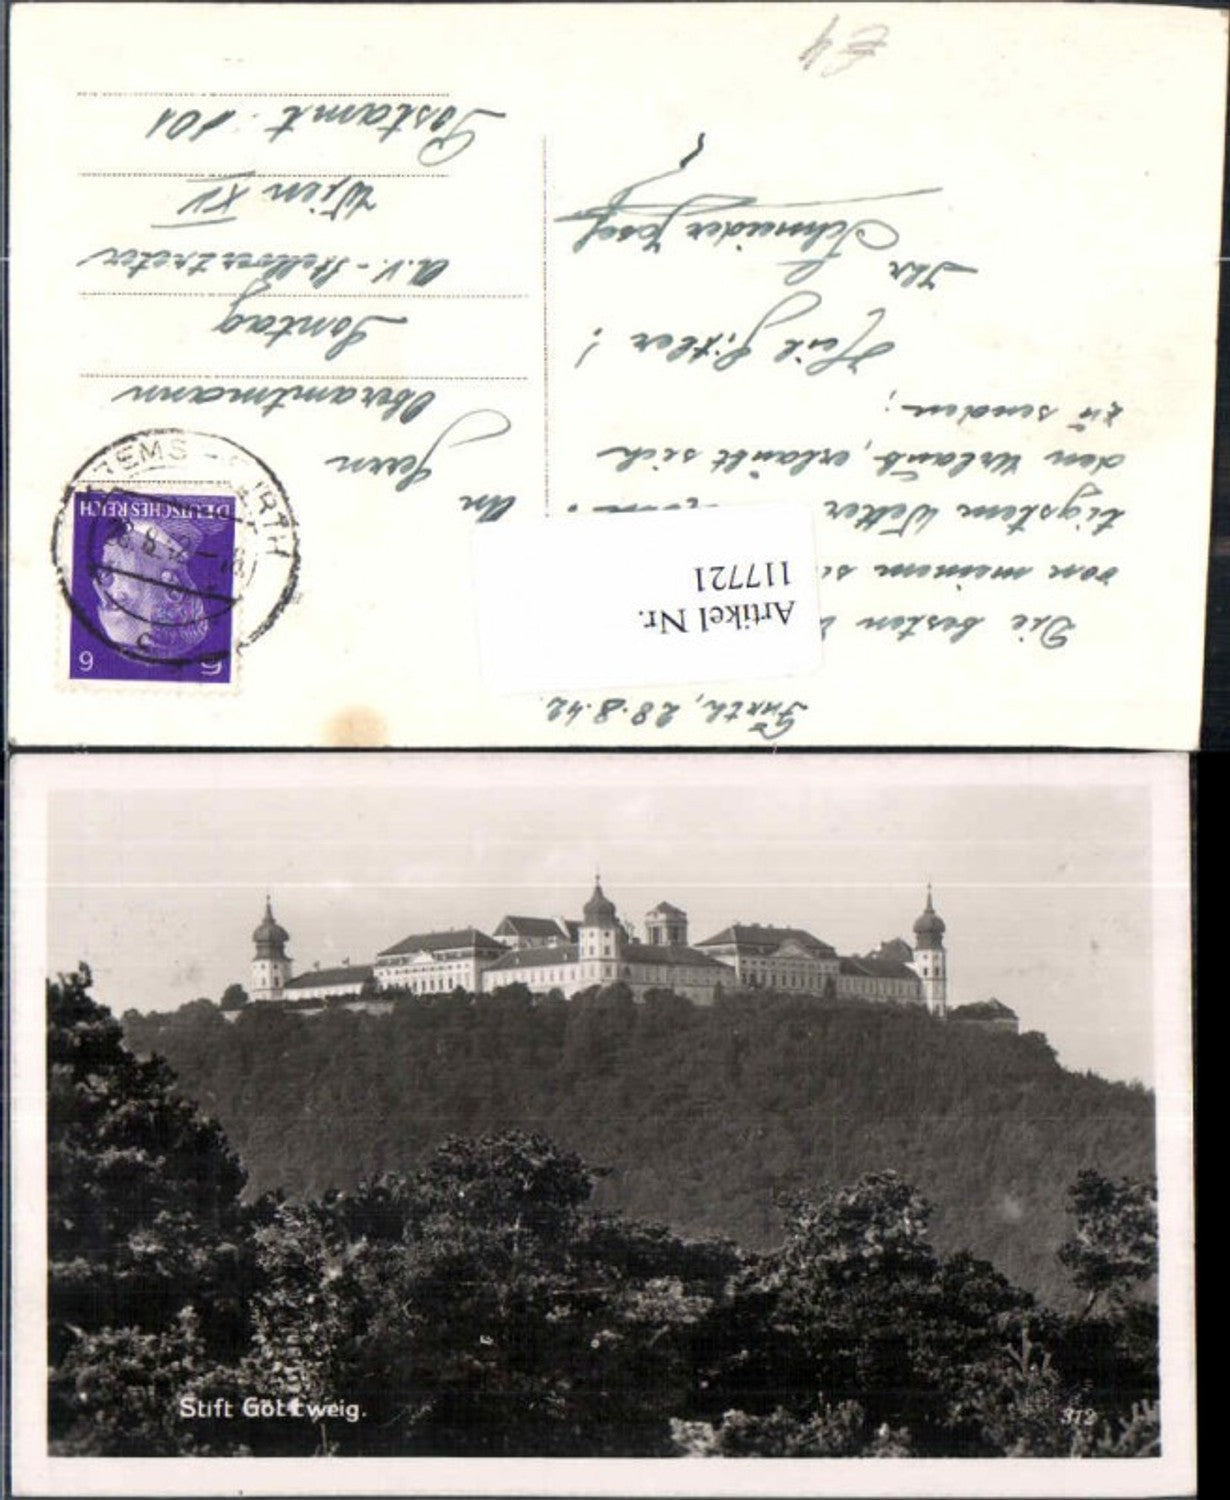 Fürth, 28.8.42.
Die besten
von meinem
tigstem Wetter
den Urlaub, erlaubt sich
zu senden;
Heil Hitler!
Ihr
Schneider Josef
An
Herrn
Oberamtmann
Sontag
A.V.-Stellvertreter
Wien XV
Postamt 101
DEUTSCHES REICH
6 6
28.8.42
Artikel Nr.
117721
€4
Stift Göttweig.
312